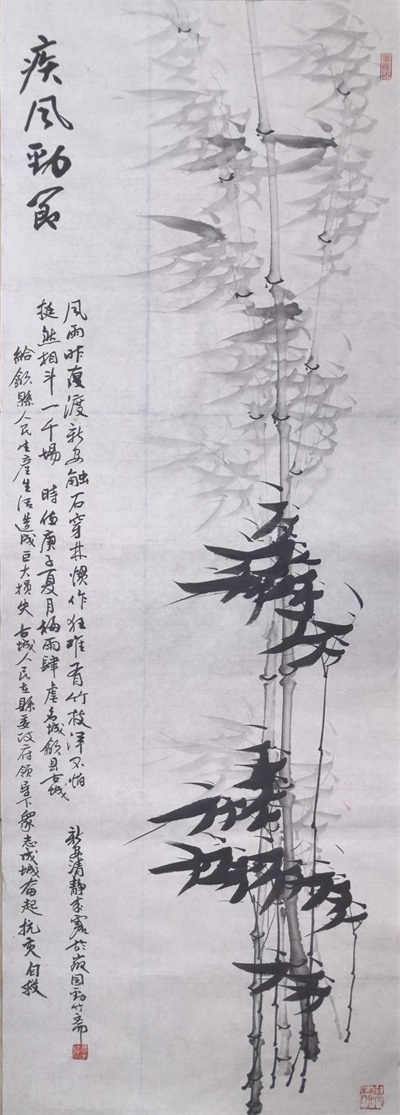 疾风劲节
风雨昨夜渡新安融石穿林惯作狂唯有竹枝浑不怕
挺然相斗一千场 時值庚子夏月梅雨肆虐名城歙县古城
給歙縣人民生產生活造成巨大损失 古城人民在縣委政府领导下眾志成城奋起抗灾自救
新安清静 客於 园劲竹斋